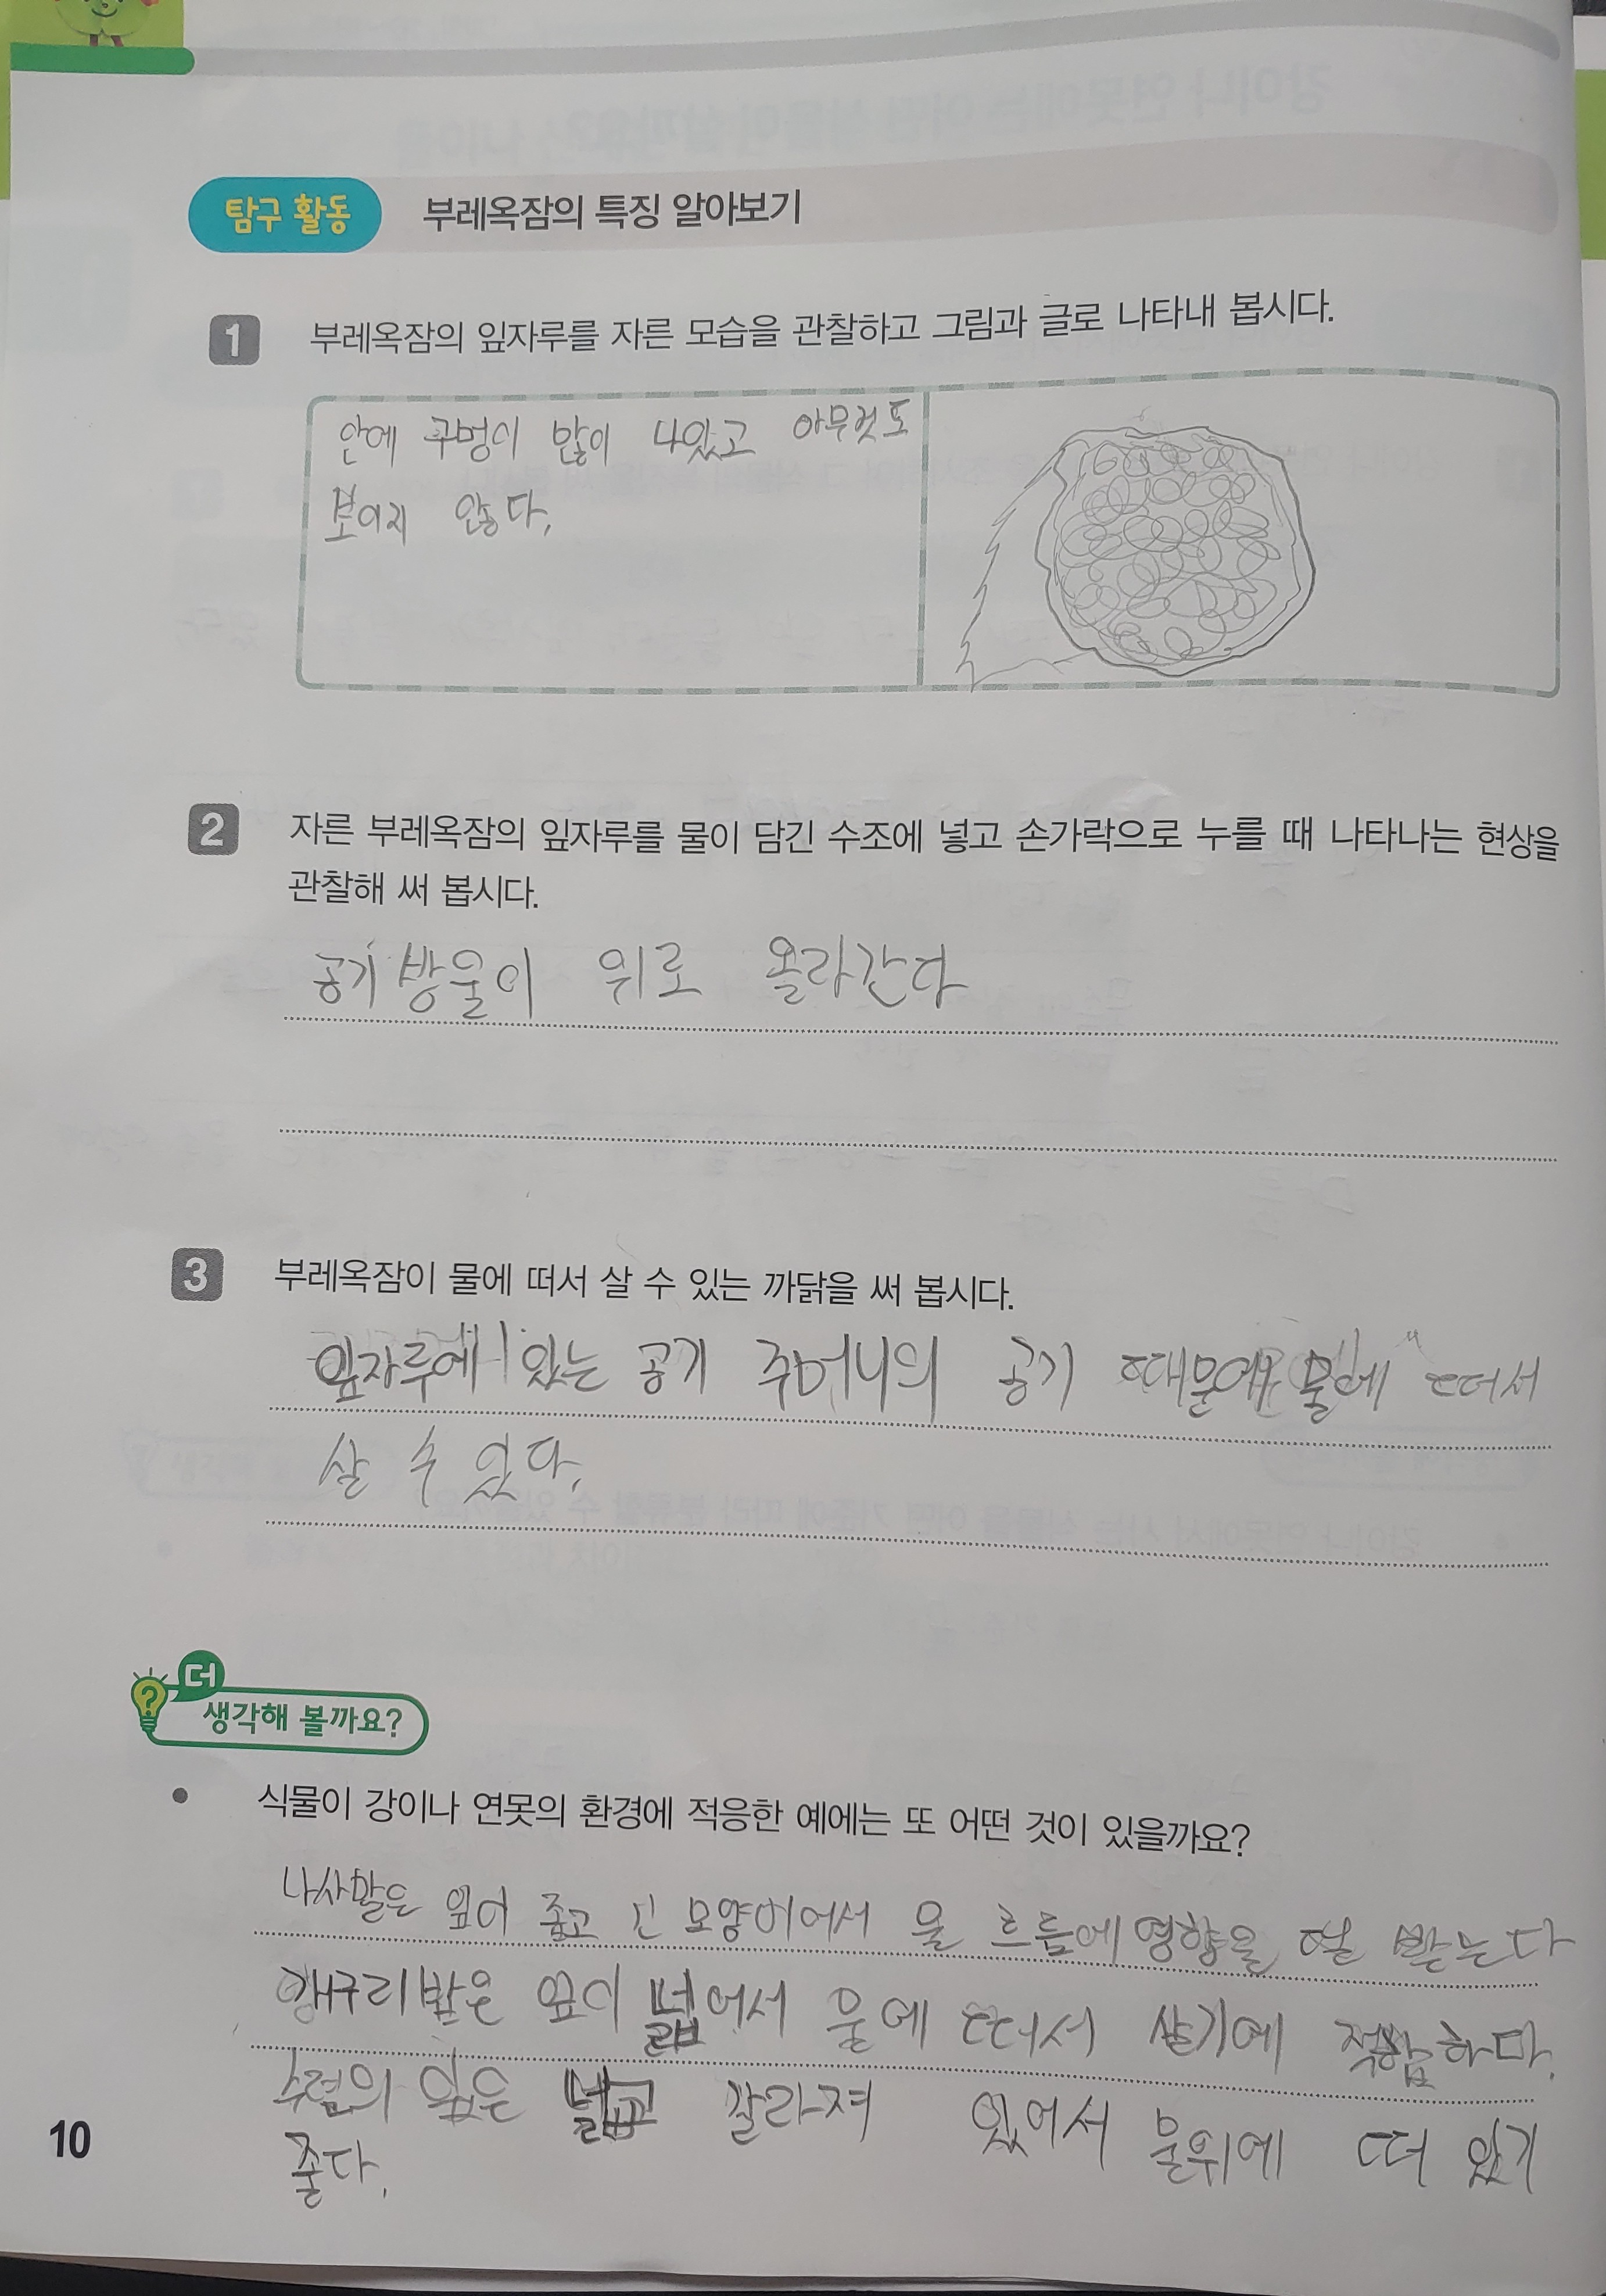 탐구 활동 부레옥잠의 특징 알아보기
1 부레옥잠의 잎자루를 자른 모습을 관찰하고 그림과 글로 나타내 봅시다.
안에 구멍이 많이 나있고 아무것도
보이지 않다.
2 자른 부레옥잠의 잎자루를 물이 담긴 수조에 넣고 손가락으로 누를 때 나타나는 현상을
관찰해 써 봅시다.
공기 방울이 위로 올라간다
3 부레옥잠이 물에 떠서 살 수 있는 까닭을 써 봅시다.
잎자루에 있는 공기 주머니의 공기 때문에 물에 떠서
살 수 있다.
더
생각해 볼까요?
• 식물이 강이나 연못의 환경에 적응한 예에는 또 어떤 것이 있을까요?
나사말은 잎이 좁고 긴 모양이어서 물 흐름에 영향을 덜 받는다
개구리밥은 잎이 넓어서 물에 떠서 살기에 적합하다.
수련의 잎은 넓고 갈라져 있어서 물위에 떠 있기
좋다.
10